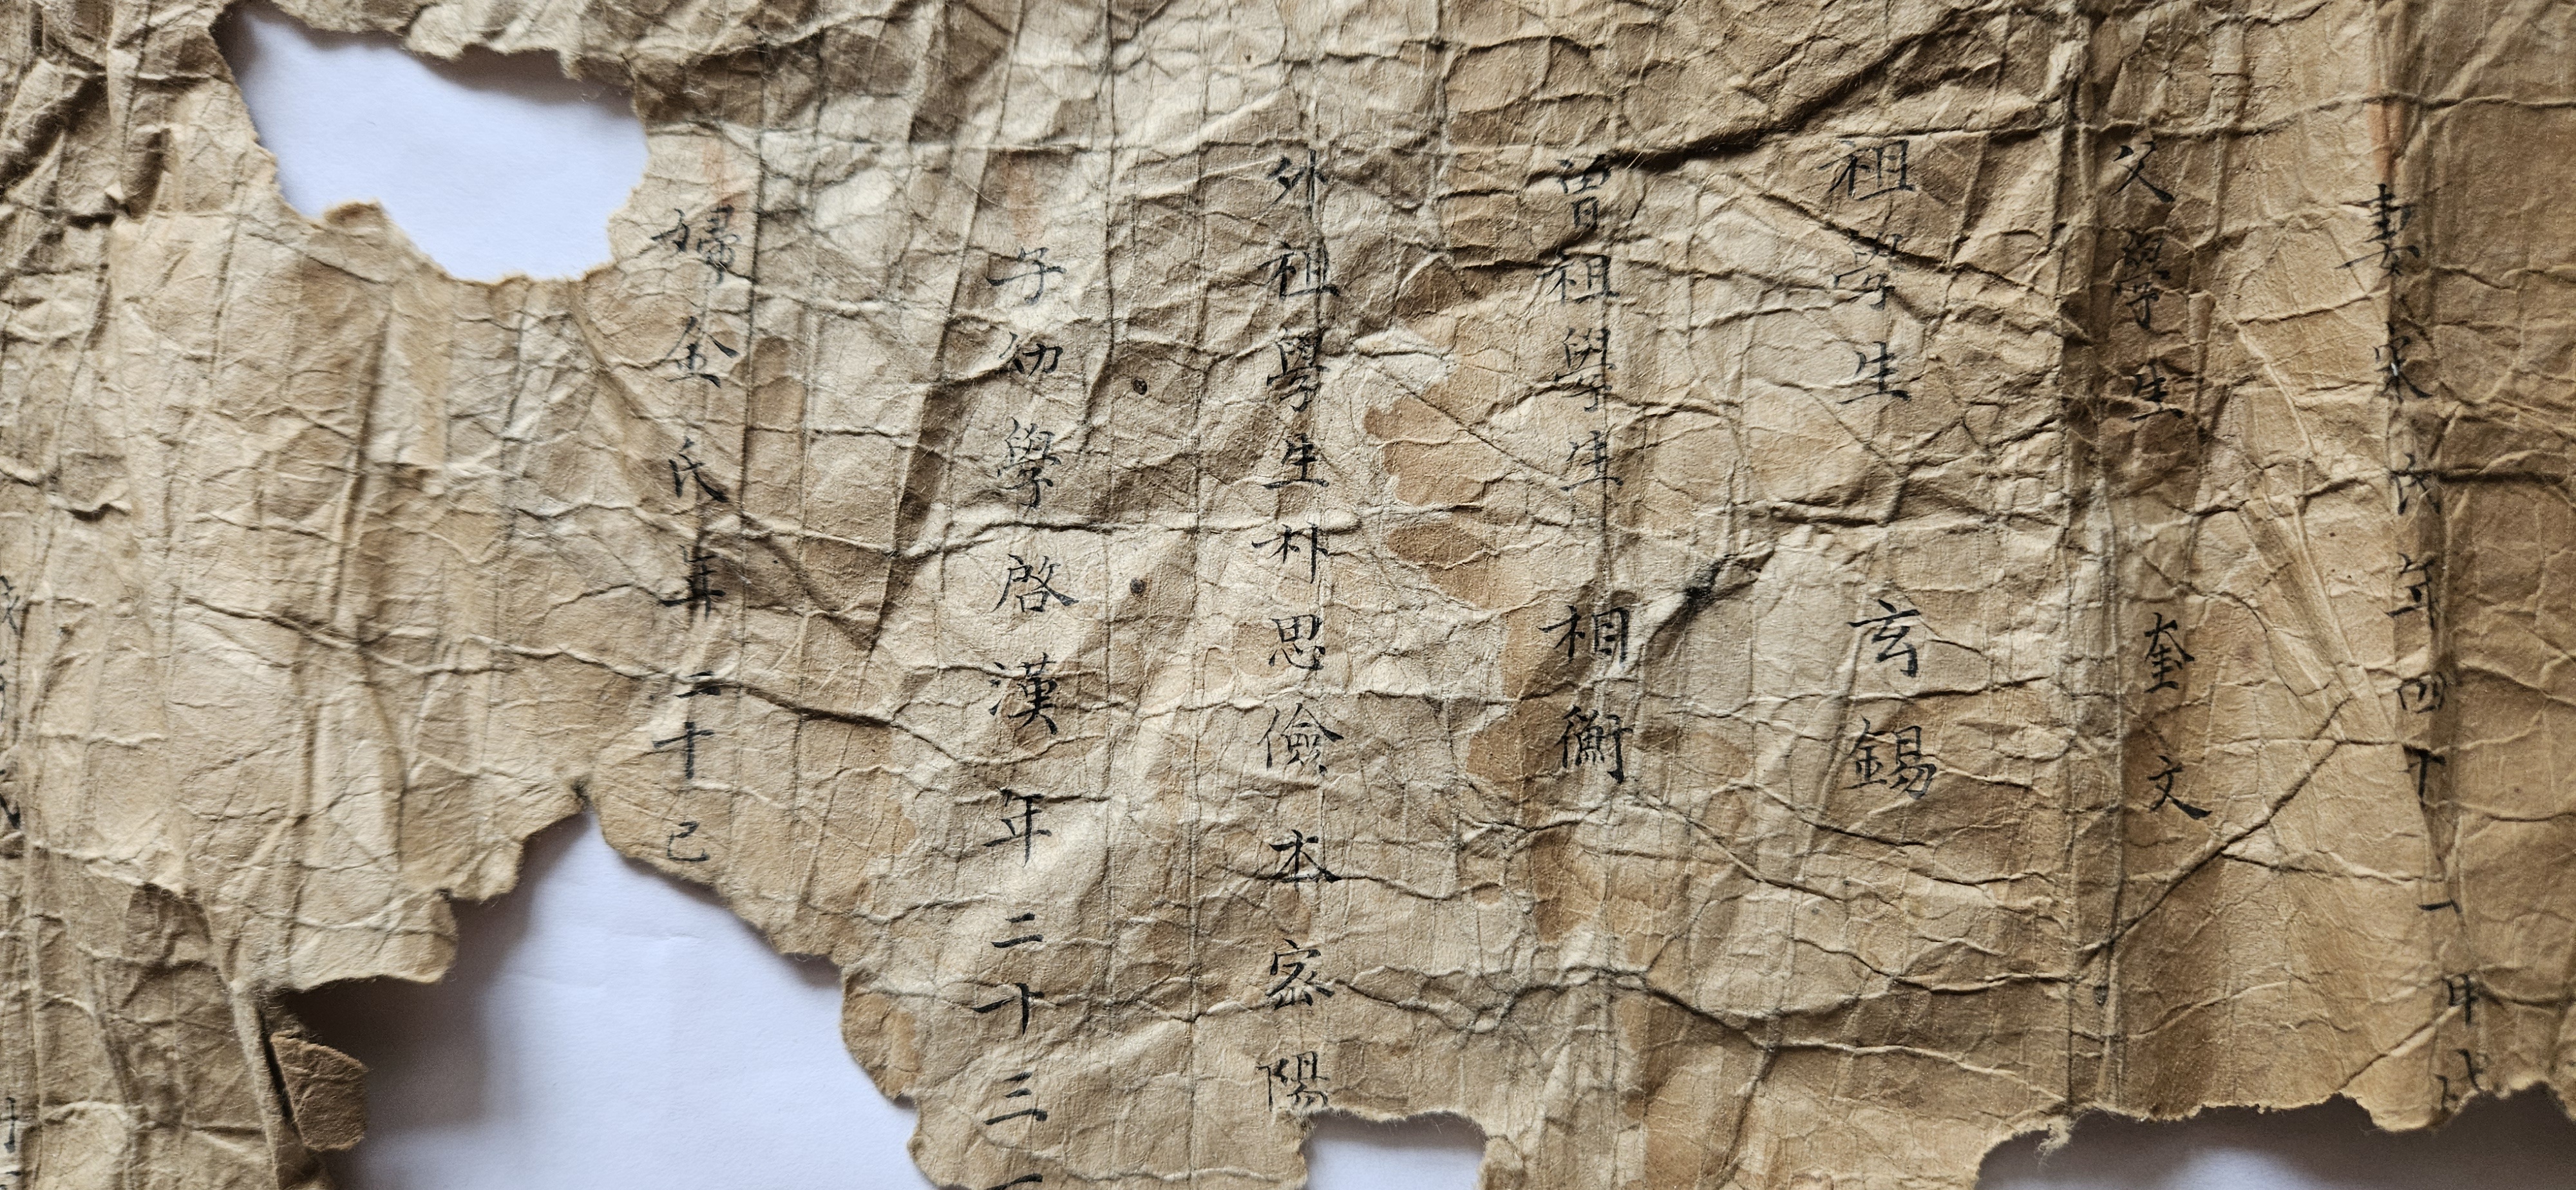 妻宋氏年四十一甲戌
父學生 奎文
祖學生 玄錫
曾祖學生 相衡
外祖學生朴思儉本密陽
子幼學啓漢年二十三
婦金氏年二十己